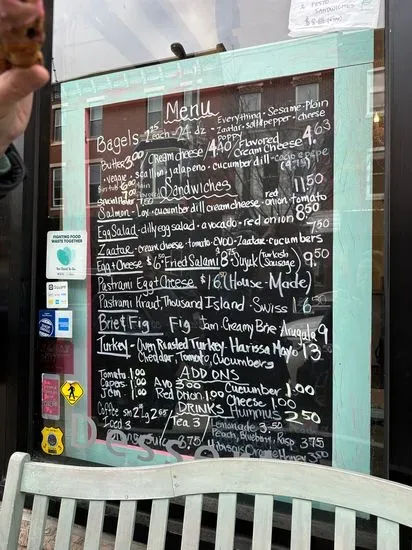 PESTO
SANDWICHES
Menu
Bagels
Each - 24 dz
Everything - Sesame - Plain
Zaatar - salt & pepper - cheese
poppy
Butter 3.00
Cream cheese / 4.40
Flavored
Cream Cheese
4.63
veggie - scallion - jalapeño - cucumber dill - cacio e pepe
Sandwiches
Salmon - Lox - cucumber dill cream cheese - red onion - tomato
11.50
Egg Salad - dilly egg salad - avocado - red onion
8.50
Zaatar - cream cheese - tomato - EVOO - Zaatar - cucumbers
7.50
Egg + Cheese $6.50
Fried Salami
Sujuk (Turkish Sausage)
9.50
Pastrami Egg + Cheese $16.50 (House-Made)
Pastrami Kraut, Thousand Island - Swiss 16.50
Brie & Fig Fig Jam - Creamy Brie, Arugala 9
Turkey - Oven Roasted Turkey, Harissa Mayo 13
Cheddar, Tomato, Cucumbers
ADD ONS
Tomato 1.00
Capers 1.00
Jam 1.00
Avo 3.00
Red Onion 1.00
Cucumber 1.00
Cheese 1.00
Hummus 2.50
DRINKS
Coffee sm 2 lg 2.85
Iced 3
Tea 3
Lemonade 3.50
Peach, Blueberry, Rasp 3.75
3.75
FIGHTING FOOD
WASTE TOGETHER
Too Good To Go
Desse